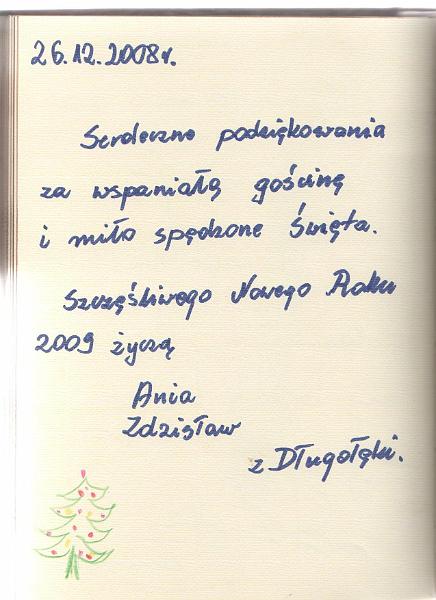 26.12.2008r.
Serdeczne podziękowania
za wspaniałą gościnę
i miło spędzone Święta.
Szczęśliwego Nowego Roku
2009 życzą
Ania
Zdzisław
z Długołęki.